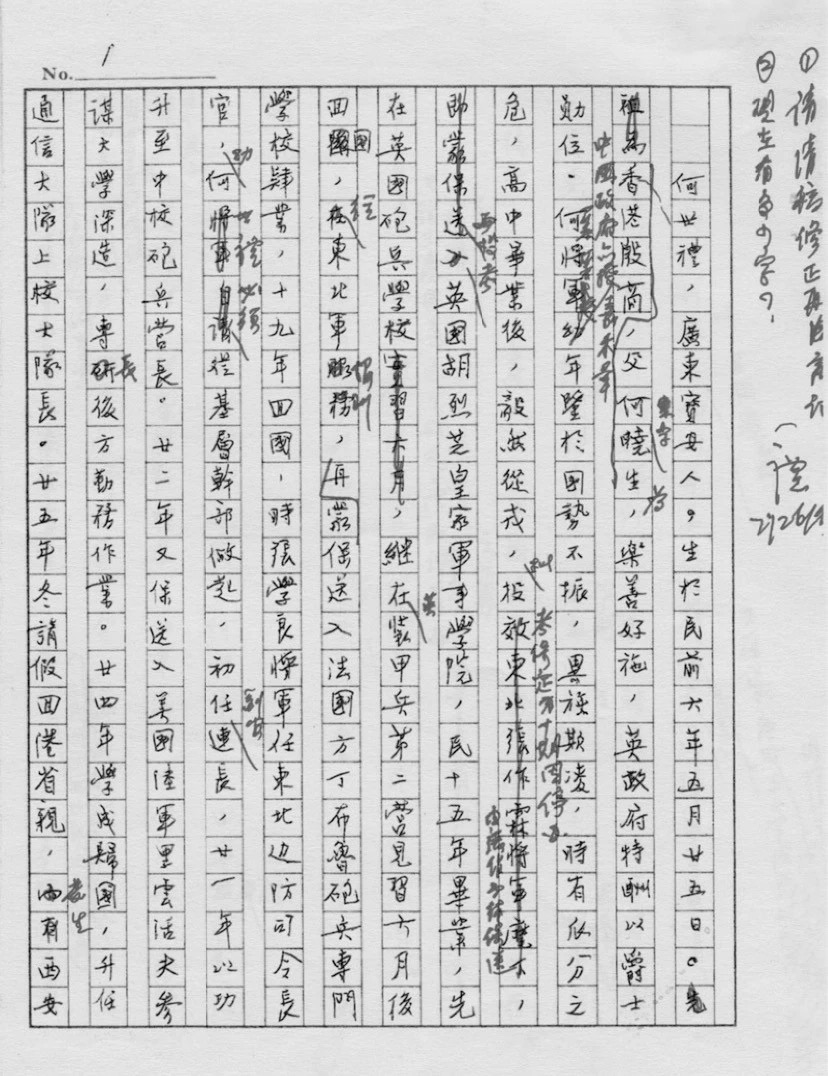 No. 1
① 請清稿修正再
② 現在有多少字？
何世禮，廣東寶安人。生於民前六年五月廿五日。先
祖為香港殷商，父何曉生，樂善好施，英政府特酬以爵士
勳位。何將軍幼年鑒於國勢不振，異族欺凌，時有瓜分之
中國政府亦獎嘉禾章
危，高中畢業後，毅然從戎，投效東北張作霖將軍麾下，
考保定第十期因停辦
即蒙保送入英國胡烈芝皇家軍事學院，民十五年畢業，先
再投考
在英國砲兵學校實習六月，繼在裝甲兵第二營見習六月後
英
回國，在東北軍服務，再蒙保送入法國方丁布魯砲兵專門
國
學校肄業，十九年回國，時張學良將軍任東北边防司令長
官，何將軍自議從基層幹部做起，初任連長，廿一年以功
必須
升至中校砲兵營長。廿二年又保送入美國陸軍里雲活夫參
謀大學深造，專研後方勤務作業。廿四年學成歸國，升任
長
通信大隊上校大隊長。廿五年冬請假回港省親，西安